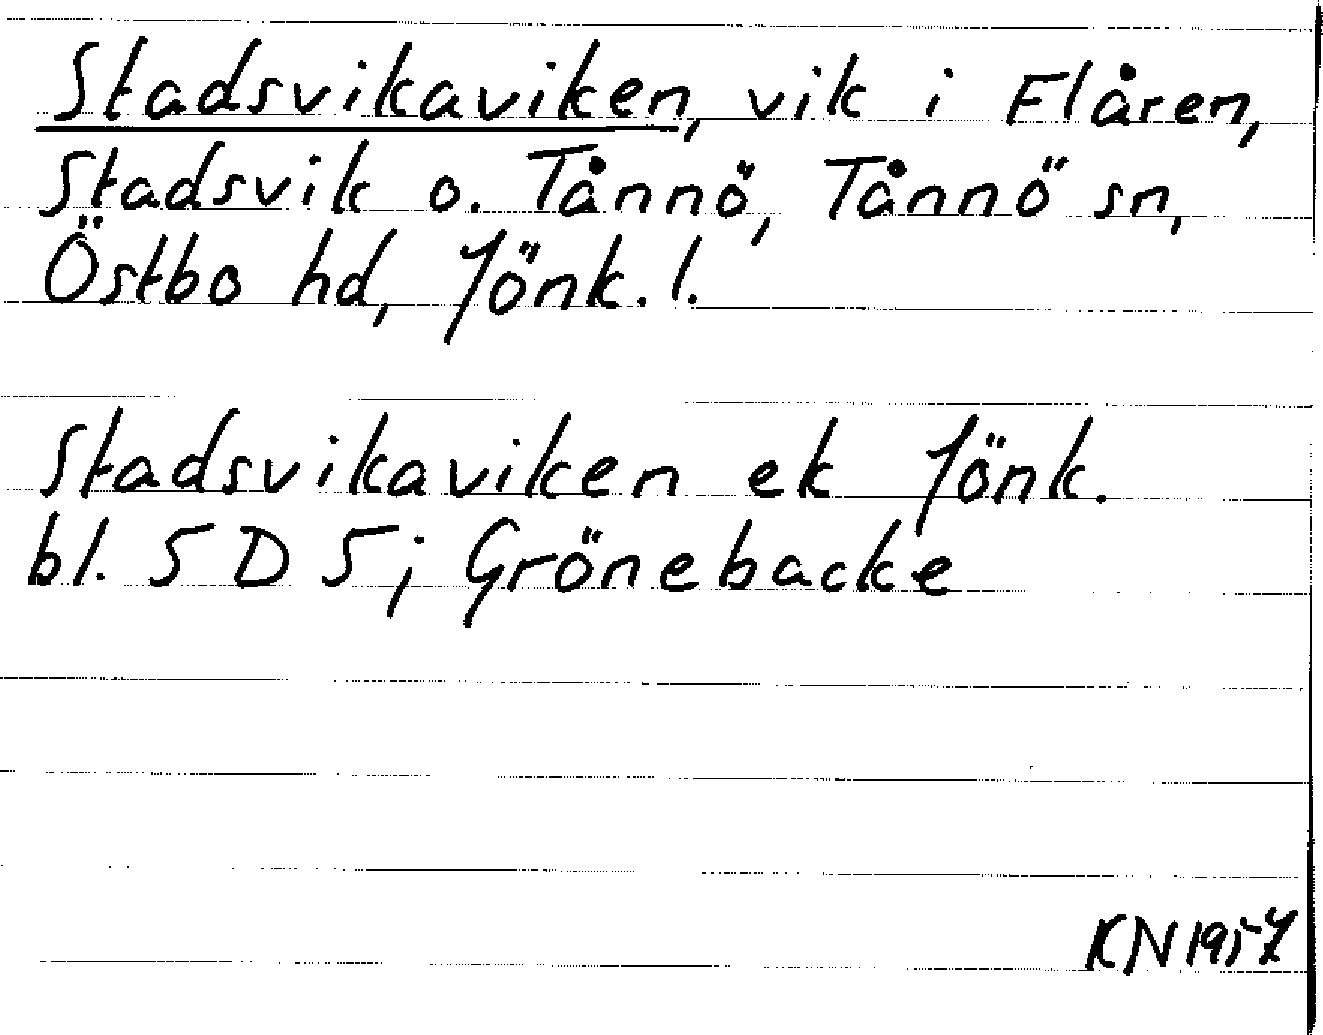 Stadsvikaviken, vik i Flåren,
Stadsvik o. Tånnö, Tånnö sn,
Östbo hd, Jönk. l.
Stadsvikaviken ek Jönk.
bl. 5 D 5; Grönebacke
KN 1957